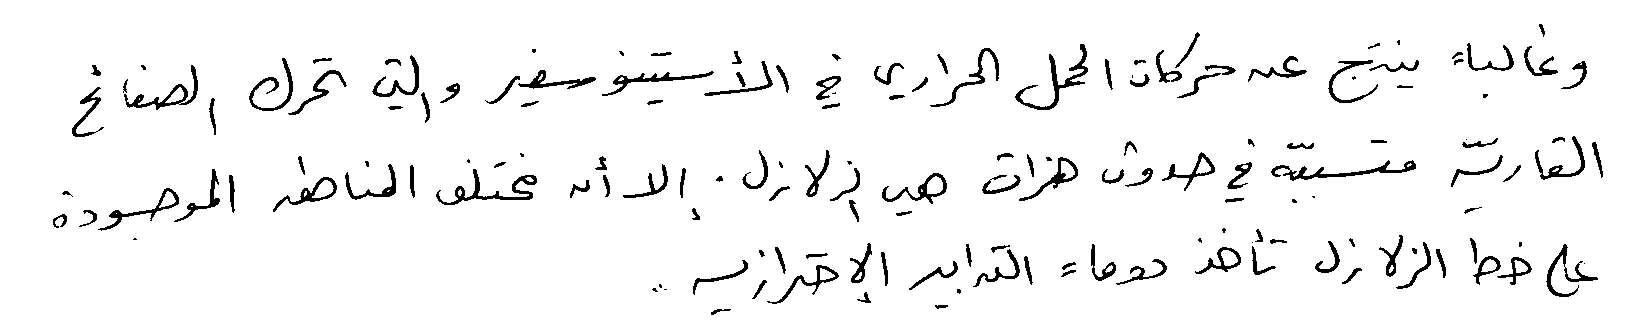 وغالباً ينتج عن حركات الحمل الحراري في الأستينوسفير والتي تحرك الصفائح
القاريّة متسببّة في حدوث هزات هي الزلازل. إلا أن مختلف المناطق الموجودة
على خط الزلازل تأخذ دوماً التدابير الإحترازية..